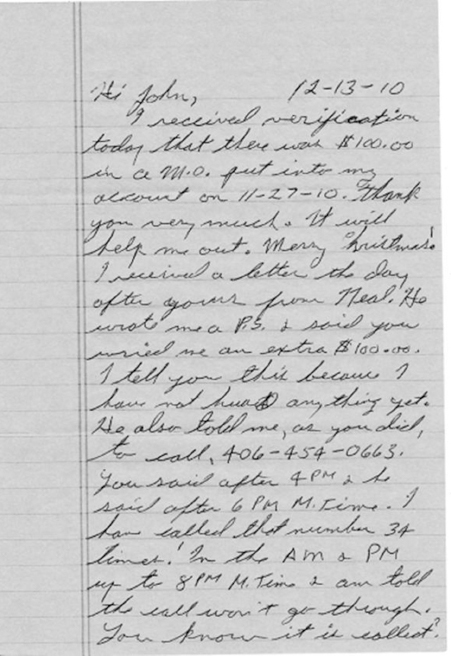 Hi John, 12-13-10
I received verification
today that there was $100.00
in a M.O. put into my
account on 11-27-10. Thank
you very much. It will
help me out. Merry Christmas!
I received a letter the day
after yours from Neal. He
wrote me a P.S. & said you
wired me an extra $100.00.
I tell you this because I
have not heard anything yet.
He also told me, as you did,
to call, 406-454-0663.
You said after 4 PM & he
said after 6 PM M.Time. I
have called that number 34
times! In the AM & PM
up to 8 PM M.Time & am told
the call won't go through.
You know it is collect?